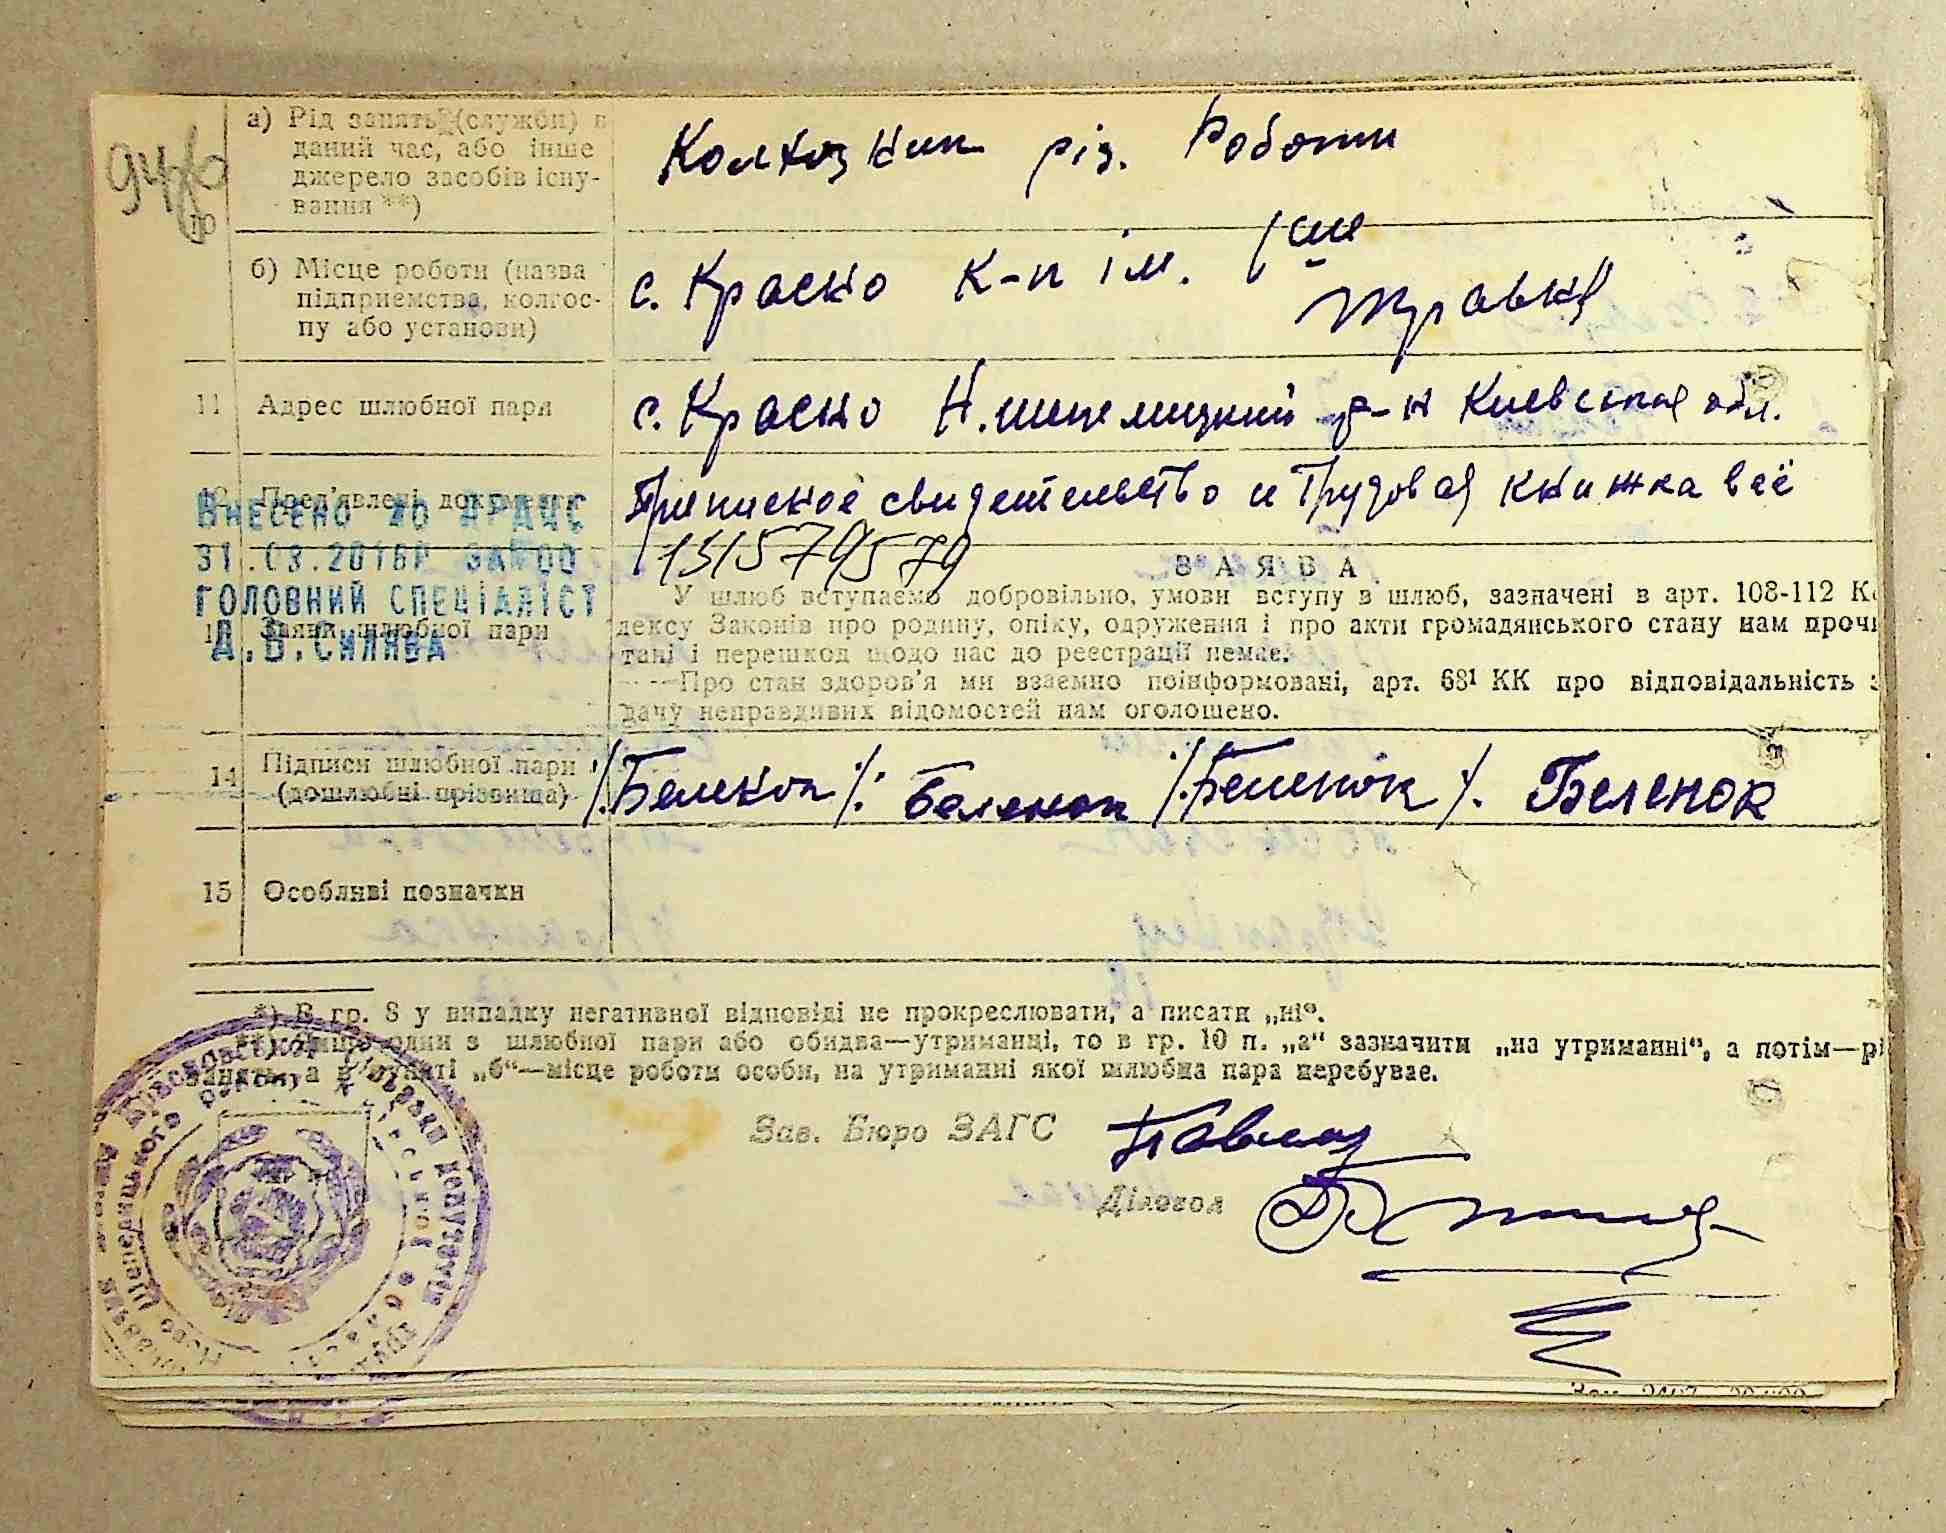 94/6
10
а) Рід занять (служби) в
даний час, або інше
джерело засобів існу-
вання **)
Колхозник різ. Роботи
б) Місце роботи (назва
підприємства, колгос-
пу або установи)
с. Краско к-п ім. 1ше
Травня
11 Адрес шлюбної пари
с. Краско Н.шепелицкий р-н Киевская обл.
12 Пред'явлені документи
Приписное свидетельство и Трудовая книжка вее
131579579
ВНЕСЕНО ДО ДРАЦС
31.03.2016Р ЗА №00
ГОЛОВНИЙ СПЕЦІАЛІСТ
Д.В.Силява
1 Заяви шлюбної пари
ЗАЯВА
У шлюб вступаємо добровільно, умови вступу в шлюб, зазначені в арт. 108-112 Ко
дексу Законів про родину, опіку, одруження і про акти громадянського стану нам прочи
тані і перешкод щодо нас до реєстрації немає.
Про стан здоров'я ми взаємно поінформовані, арт. 68¹ КК про відповідальність з
дачу неправдивих відомостей нам оголошено.
14 Підписи шлюбної пари
(дошлюбні прізвища)
/.Беленок/. Беленок /.Беленок/. Беленок
15 Особливі позначки
*) В гр. 8 у випадку негативної відповіді не прокреслювати, а писати „ні“.
**) Якщо один з шлюбної пари або обидва—утриманці, то в гр. 10 п. „а“ зазначити „на утриманні“, а потім—рі
занять, а в пункті „б“—місце роботи особи, на утриманні якої шлюбна пара перебуває.
Зав. Бюро ЗАГС
Діловод